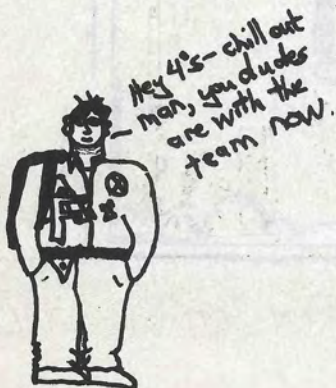 Hey 4's - chill out
man, you dudes
are with the
team now.